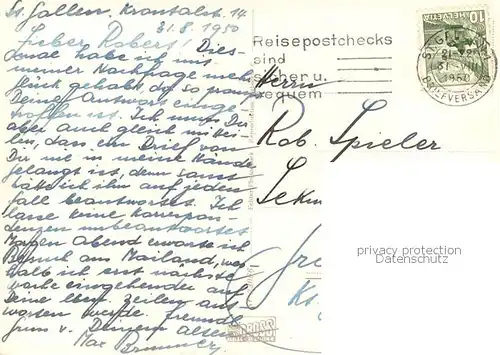 St. Gallen, Krontalstr. 14
31.8.1950
Lieber Robert! Dies-
mal habe ich mit
meiner Nachfrage mehr
Glück gehabt, da so prompt
Deine Antwort einge-
troffen ist. Ich muss Dir
aber auch gleich mittei-
len, dass ein Brief von
Dir nie in meine Hände
gelangt ist, denn sonst
hätte ich ihn auf jeden
Fall beantwortet. Ich
lasse keine Korrespon-
denzen unbeantwortet
Morgen Abend erwarte ich
Besuch aus Mailand, wes-
halb ich erst nächste
Woche eingehender auf
Deine lben Zeilen ant-
worten werde. Freundl.
Gruss v. Deinem alten
Max
Reisepostchecks
sind
sicher u.
bequem
HELVETIA 10
BRIEFVERSAND
Herrn
Rob. Spieler
Sekun
privacy protection
Datenschutz